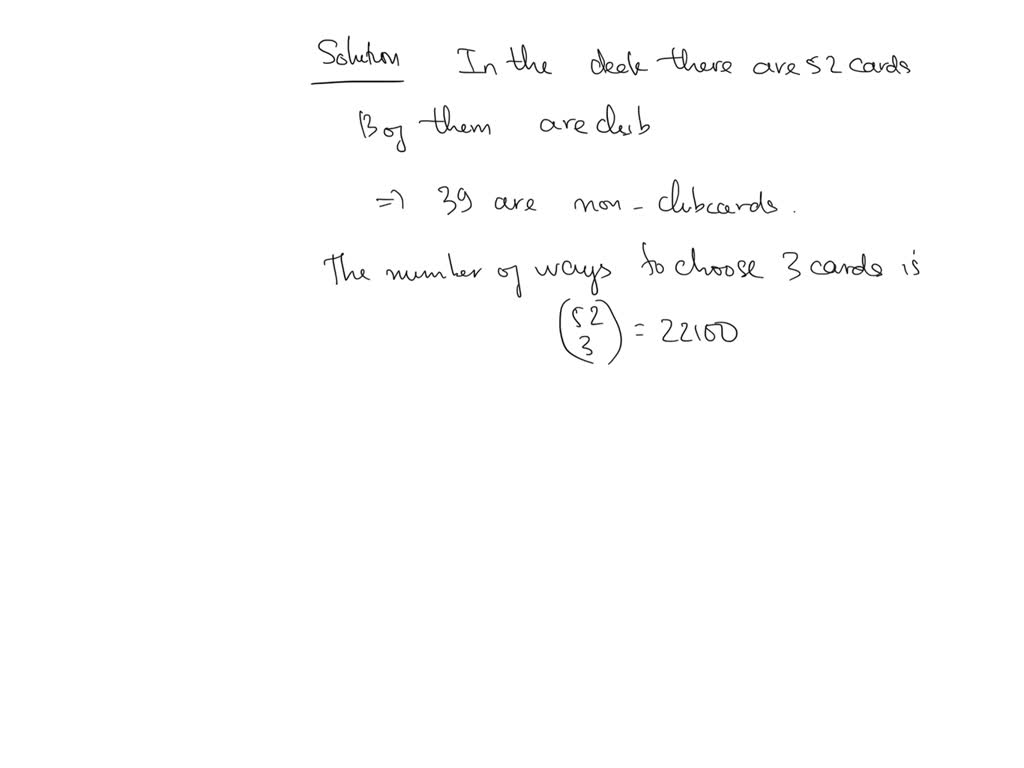 Solution In the deck there are 52 cards
13 of them are club
⇒ 39 are non - club cards.
The number of ways to choose 3 cards is
(52 3) = 22100